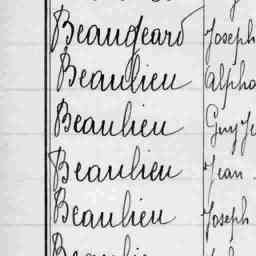 Beaugeard Joseph
Beaulieu Alpho
Beaulieu Guy Je
Beaulieu Jean
Beaulieu Joseph